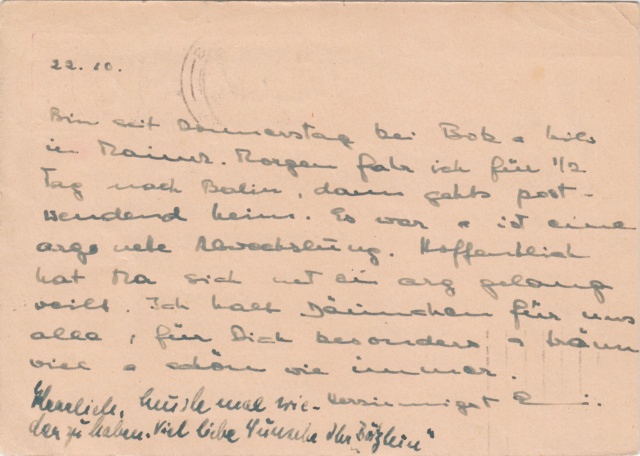 22.10.
Bin seit Donnerstag bei Bob
in Mainz. Morgen fahr ich für 1/2
Tag nach Balin, dann gehts post-
wendend heim. Es war & ist eine
arg nete Abwechslung. Hoffentlich
hat Ma sich net ein arg gelang
weilt. Ich halt Däumchen für uns
alle, für Dich besonders & träum
viel & schön wie immer.
Herrlich, mal wie- E
der zu haben. Viel liebe Wünsche Ihr